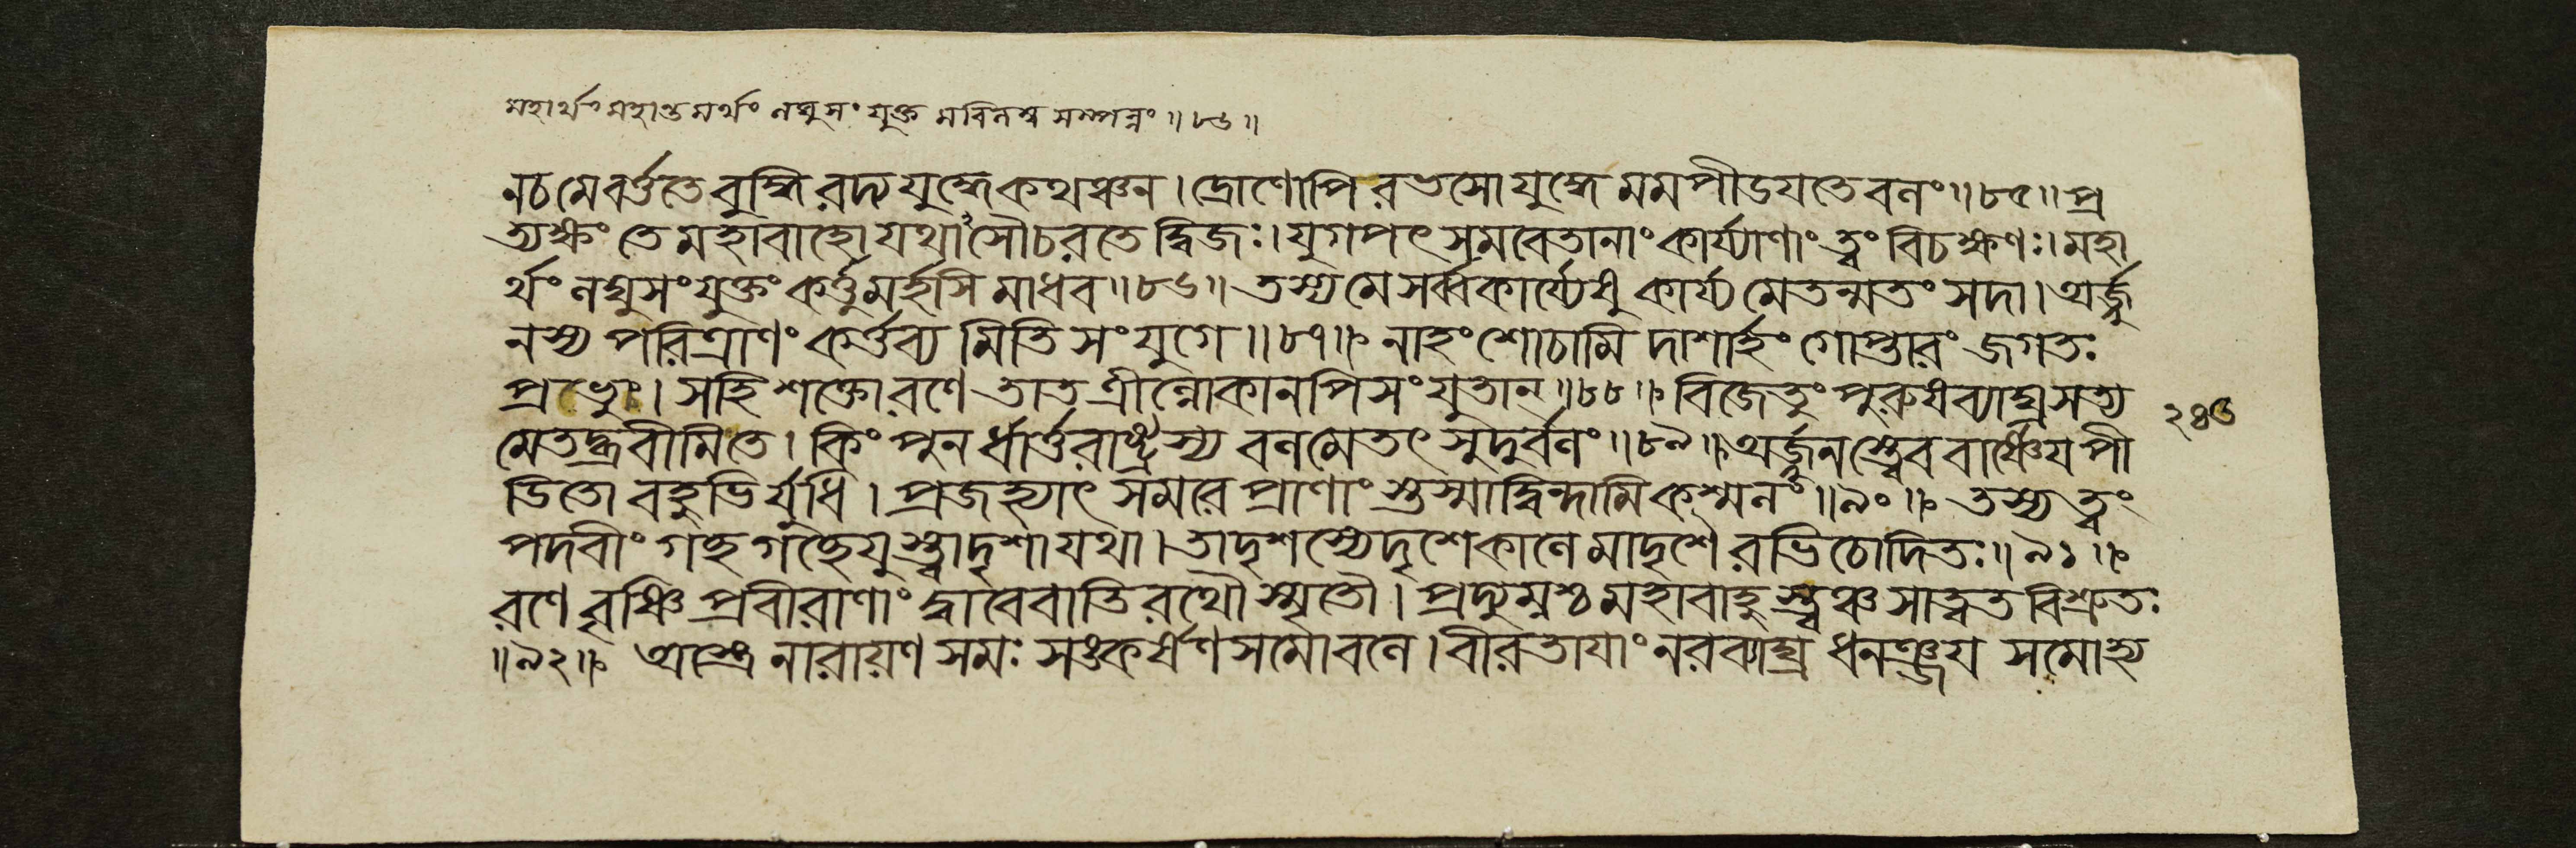 মহার্থং মহান্তমর্থং লঘুসংযুক্তমবিলম্বসম্পন্নং ॥ ৮৬ ॥
নচ মে বর্ত্ততে বুদ্ধিরদ্য যুদ্ধে কথঞ্চন । দ্রোণোপি রভসো যুদ্ধে মম পীডযতে বলং ॥ ৮৫ ॥ প্র
ত্যক্ষং তে মহাবাহো যথাসৌ চরতে দ্বিজঃ । যুগপৎ সমবেতানাং কার্য্যাণাং ত্বং বিচক্ষণঃ । মহা
র্থং লঘুসংযুক্তং কর্ত্তুমর্হসি মাধব ॥ ৮৬ ॥ তস্য মে সর্ব্বকার্য্যেষু কার্য্যমেতন্মতং সদা । অর্জ্জু
নস্য পরিত্রাণং কর্ত্তব্যমিতি সংযুগে ॥ ৮৭ ॥ নাহং শোচামি দাশার্হং গোপ্তারং জগতঃ
প্রভুং । স হি শক্তো রণে তাত ত্রীন্লোকানপি সংযুতান্ ॥ ৮৮ ॥ বিজেতুং পুরুষব্যাঘ্র সত্য
মেতদ্ব্রবীমি তে । কিং পুনর্ধার্ত্তরাষ্ট্রস্য বলমেতৎ সুদুর্বলং ॥ ৮৯ ॥ অর্জ্জুনস্ত্বেব বার্ষ্ণেয পী
ডিতো বহুভির্যুধি । প্রজহ্যাৎ সমরে প্রাণাংস্তস্মাদ্বিন্দামি কশ্মলং ॥ ৯০ ॥ তস্য ত্বং
পদবীং গচ্ছ গচ্ছেযুস্ত্বাদৃশা যথা । তাদৃশস্যেদৃশে কালে মাদৃশেরভিচোদিতঃ ॥ ৯১ ॥
রণে বৃষ্ণিপ্রবীরাণাং দ্বাবেবাতিরথৌ স্মৃতৌ । প্রদ্যুম্নশ্চ মহাবাহুস্ত্বঞ্চ সাত্বত বিশ্রুতঃ
॥ ৯২ ॥ অস্ত্রে নারায়ণসমঃ সঙ্কর্ষণসমো বলে । বীরতাযাং নরব্যাঘ্র ধনঞ্জয সমোহ্য
২৪৬